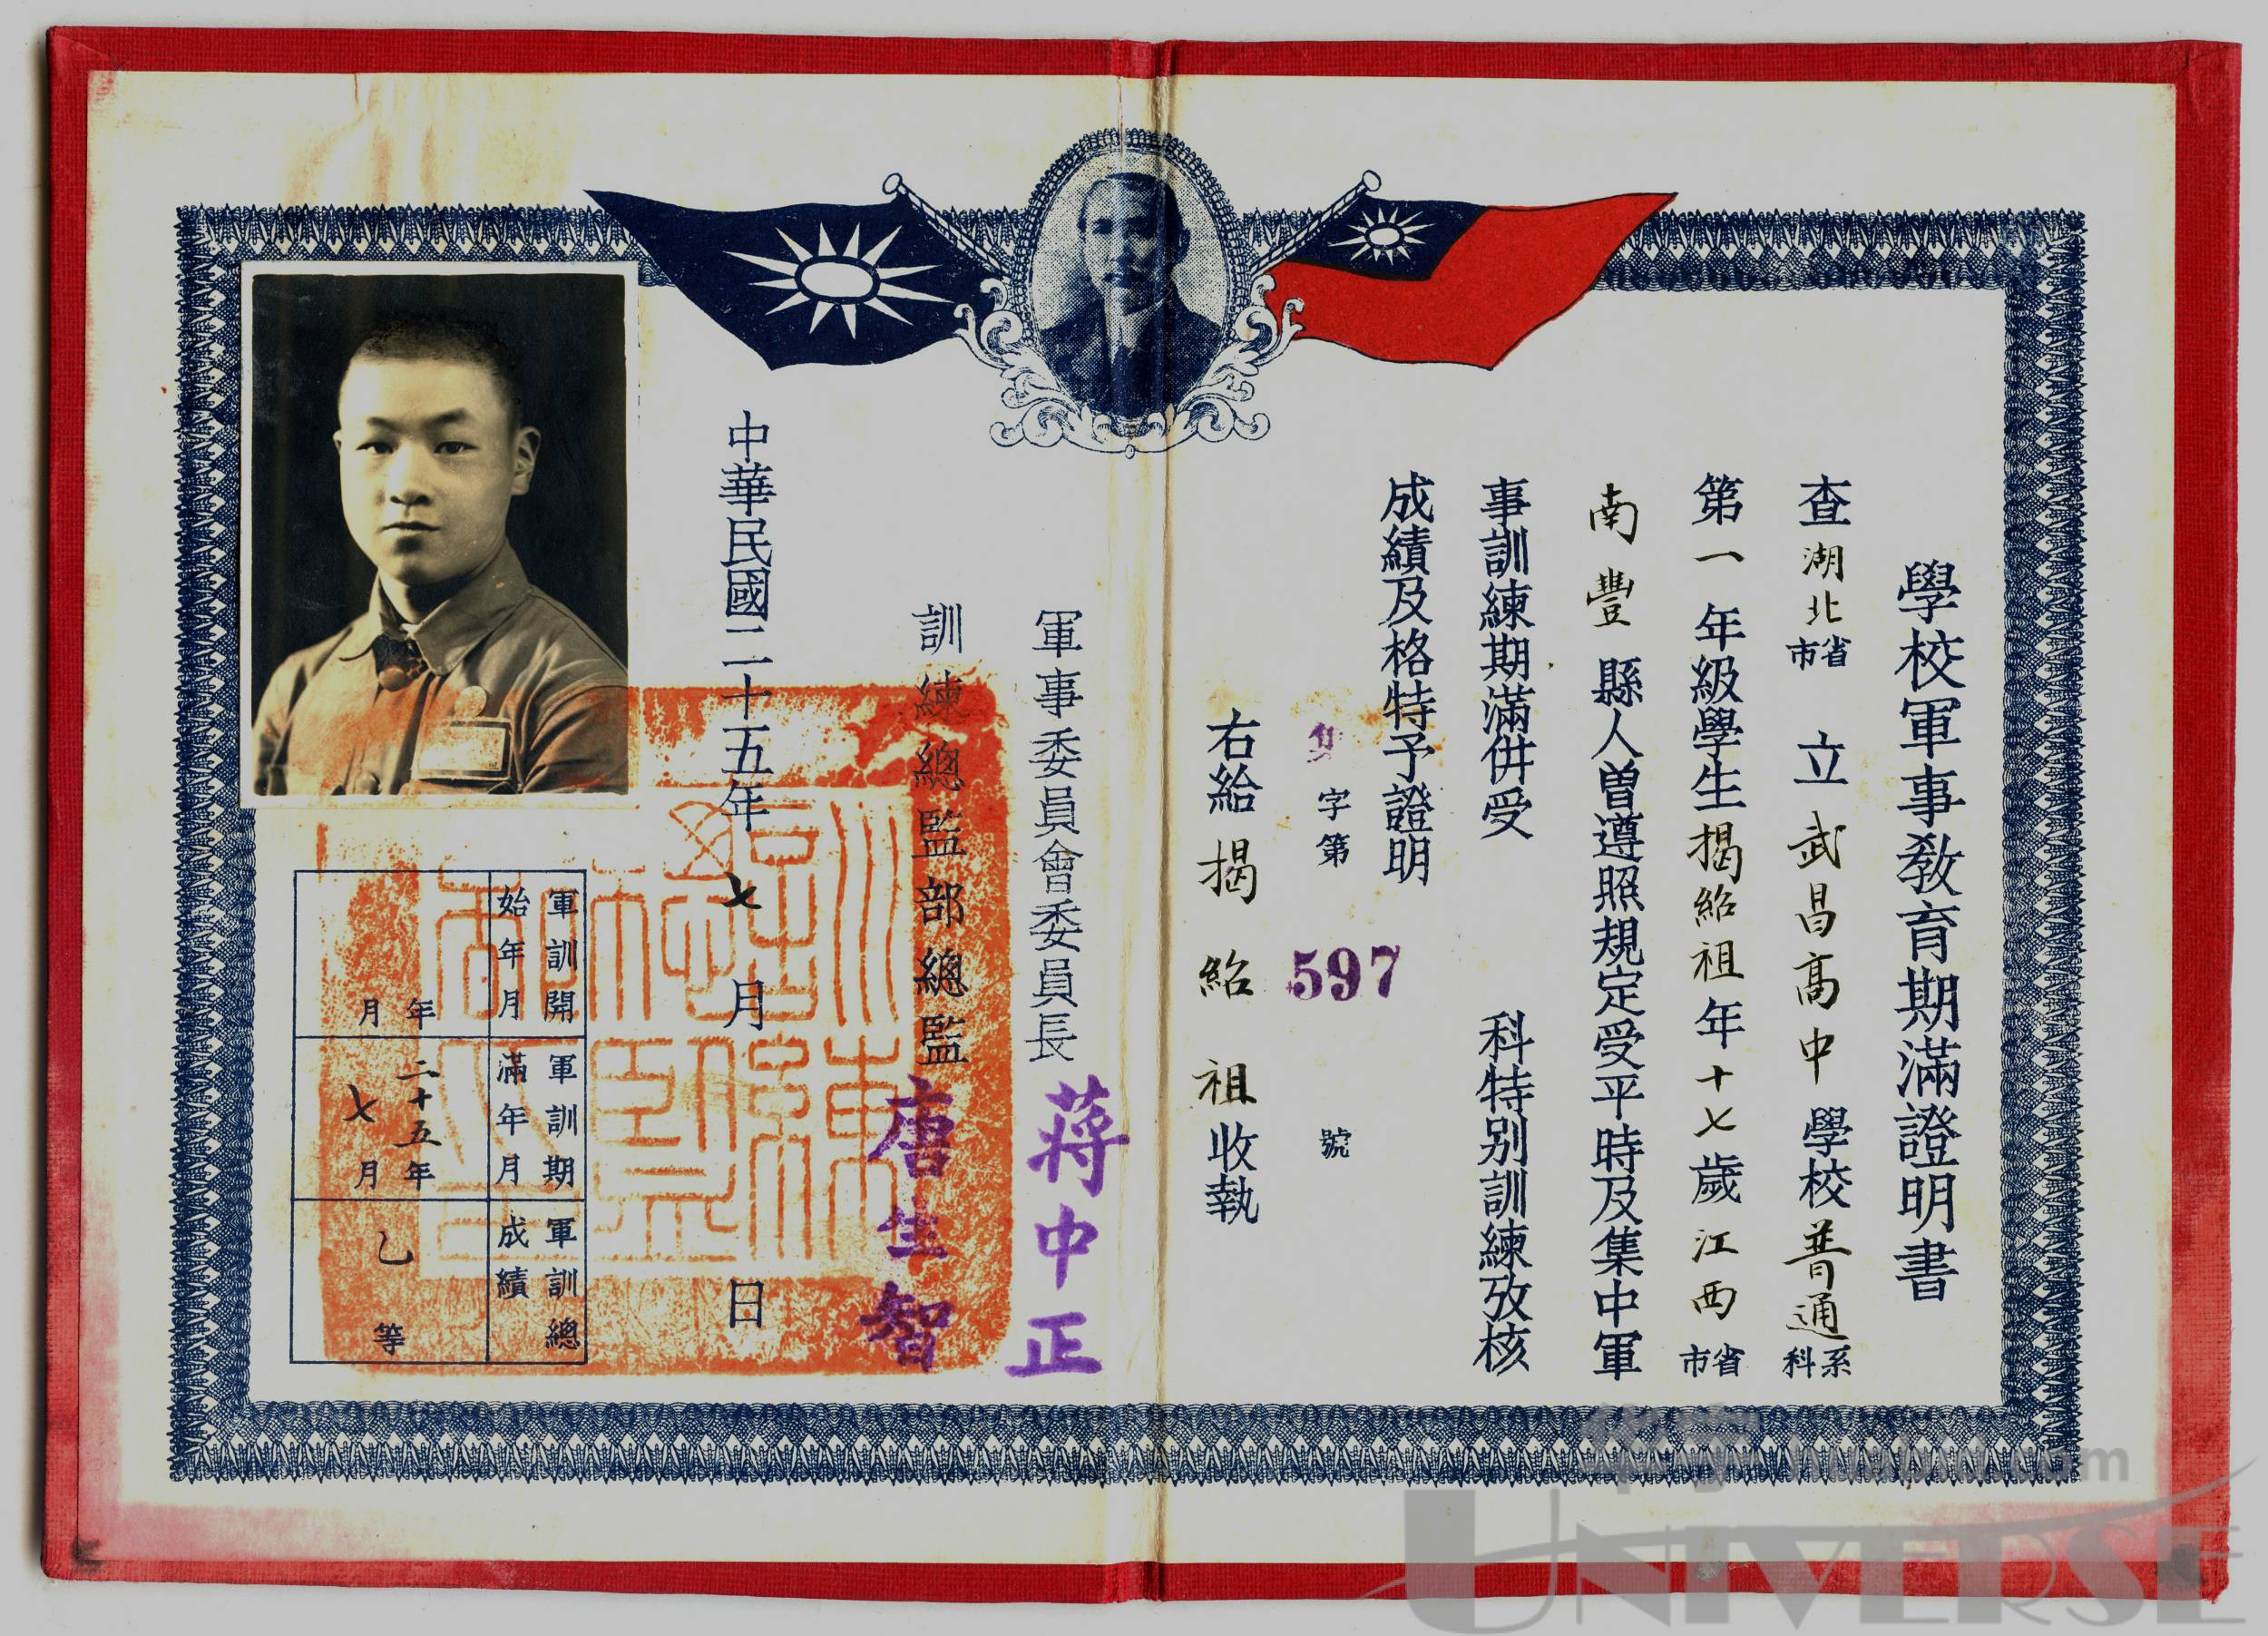 學校軍事教育期滿證明書
查湖北省市立武昌高中學校普通系科
第一年級學生揭紹祖年十七歲江西省市
南豐縣人曾遵照規定受平時及集中軍
事訓練期滿併受　　科特別訓練攷核
成績及格特予證明
集字第597號
右給揭紹祖收執
軍事委員會委員長蔣中正
訓練總監部總監唐生智
中華民國二十五年七月　日
軍訓開始年月
年　月
軍訓期滿年月
二十五年七月
軍訓總成績
乙等
訓練總監部印
UNIVERSE